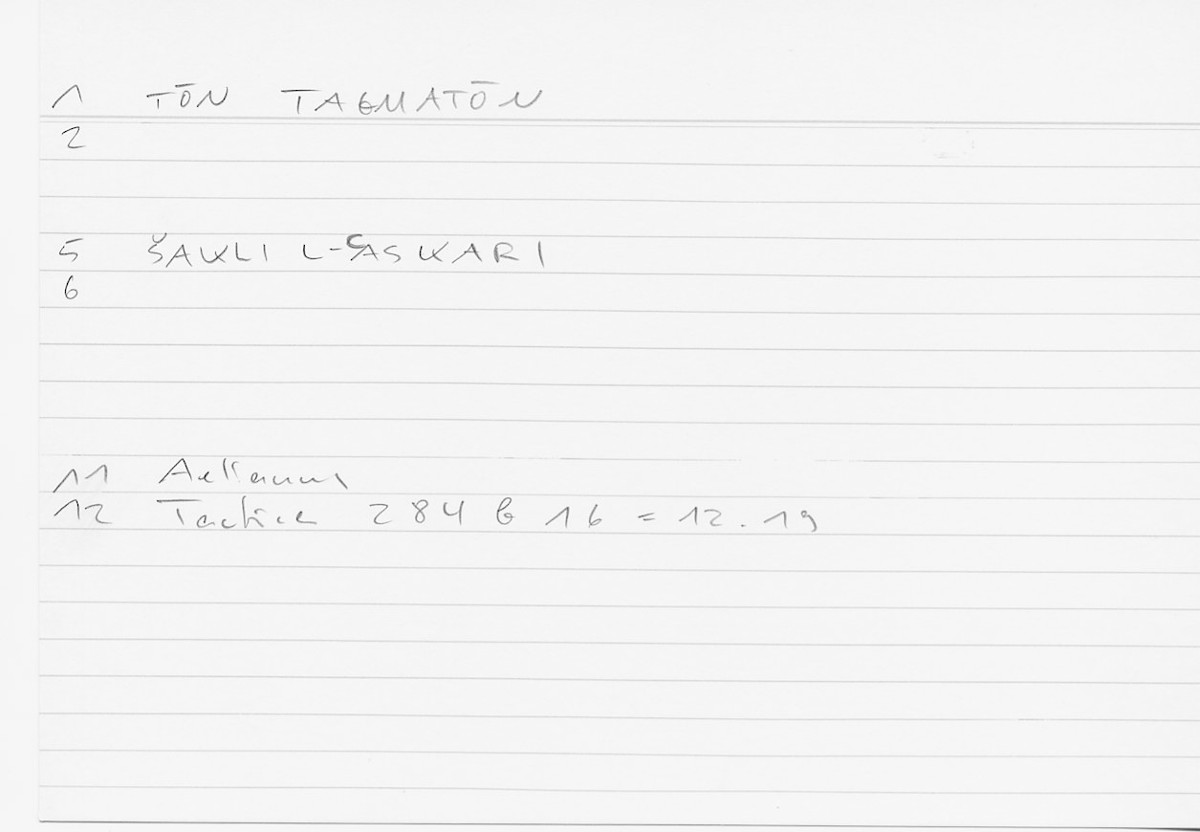 1 TŌN TAGMATŌN
2
5 ŠAKLI L-ʿASKARI
6
11 Aelianus
12 Tactica 284 b 16 = 12.19